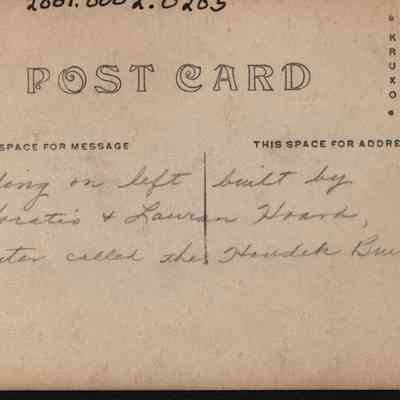 2001.0002.0205
POST CARD
KRUXO
SPACE FOR MESSAGE
THIS SPACE FOR ADDRE
ding on left built by
oratio & Lauran Hoard,
ter called the Houdek Bui